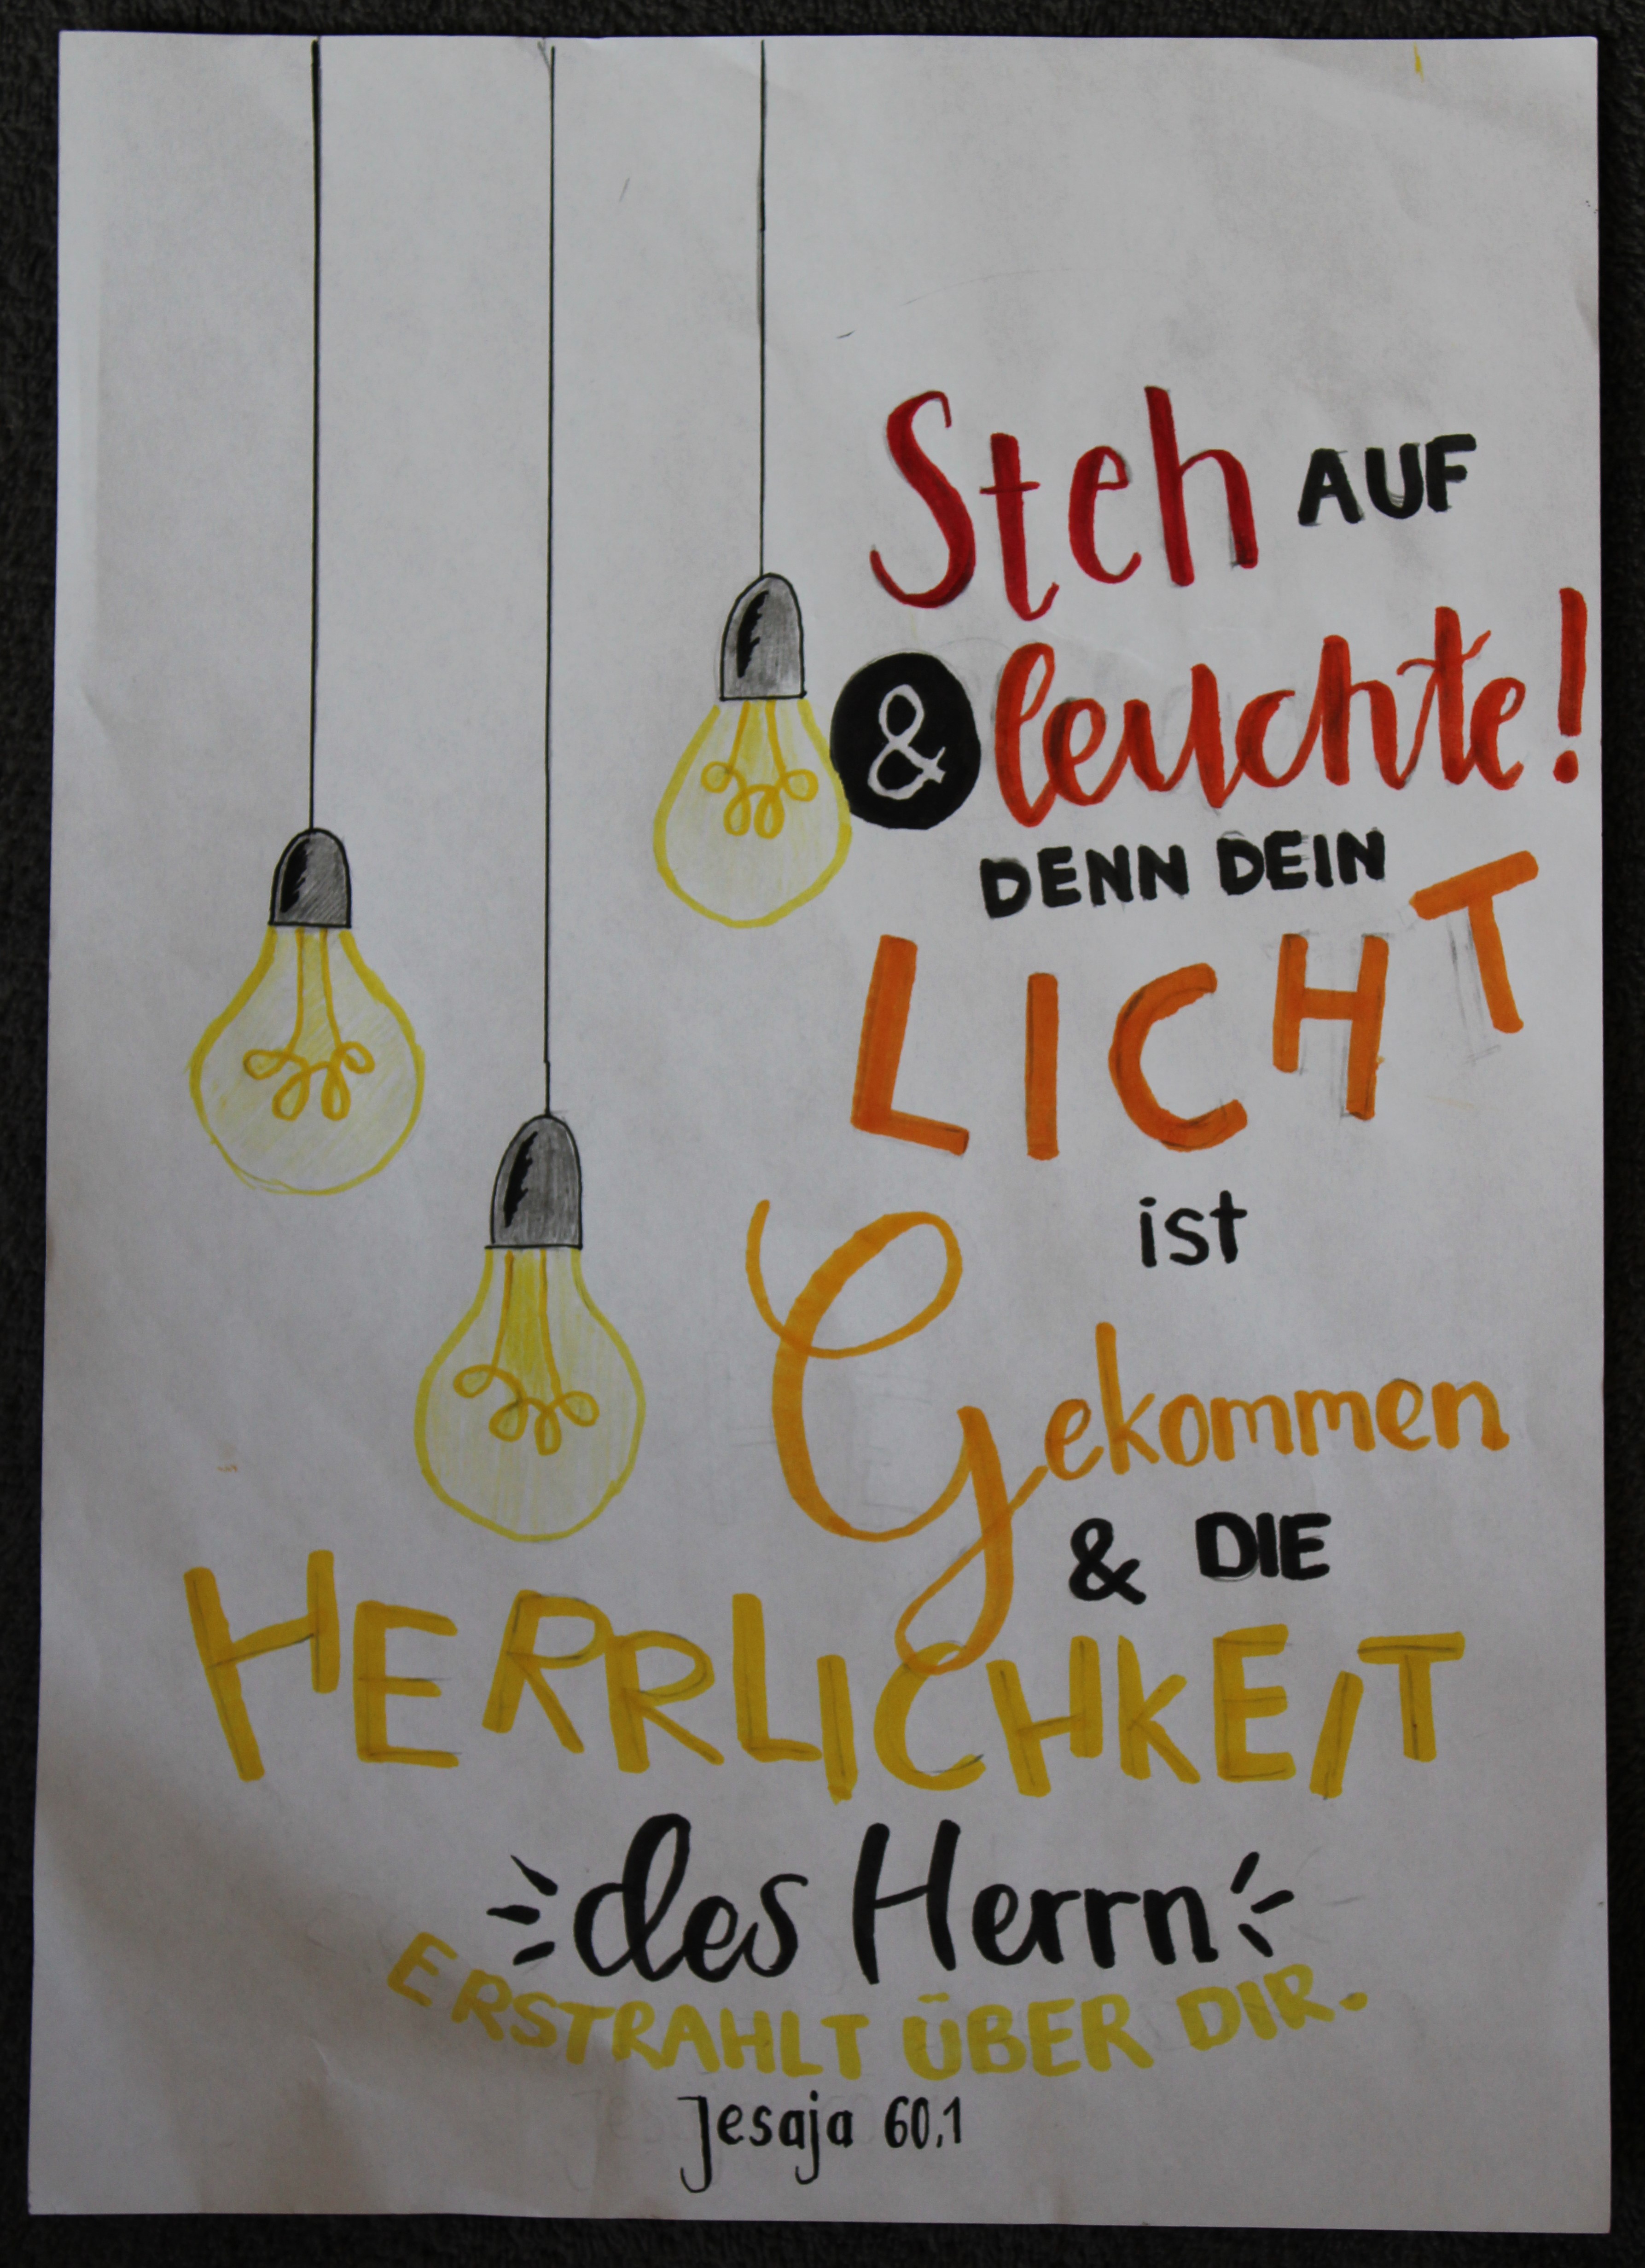 Steh AUF
& leuchte!
DENN DEIN
LICHT
ist
Gekommen
& DIE
HERRLICHKEIT
des Herrn
ERSTRAHLT ÜBER DIR.
Jesaja 60,1